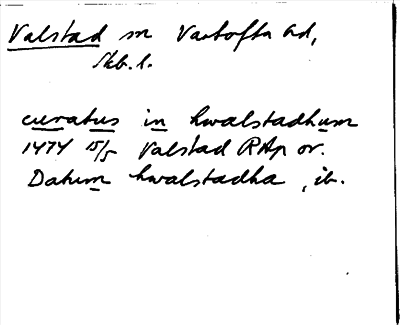 Valstad sn Vartofta hd,
Skb. l.
curatus in hwalstadhum
1474 15/5 Valstad RAp or.
Datum hwalstadha, ib.